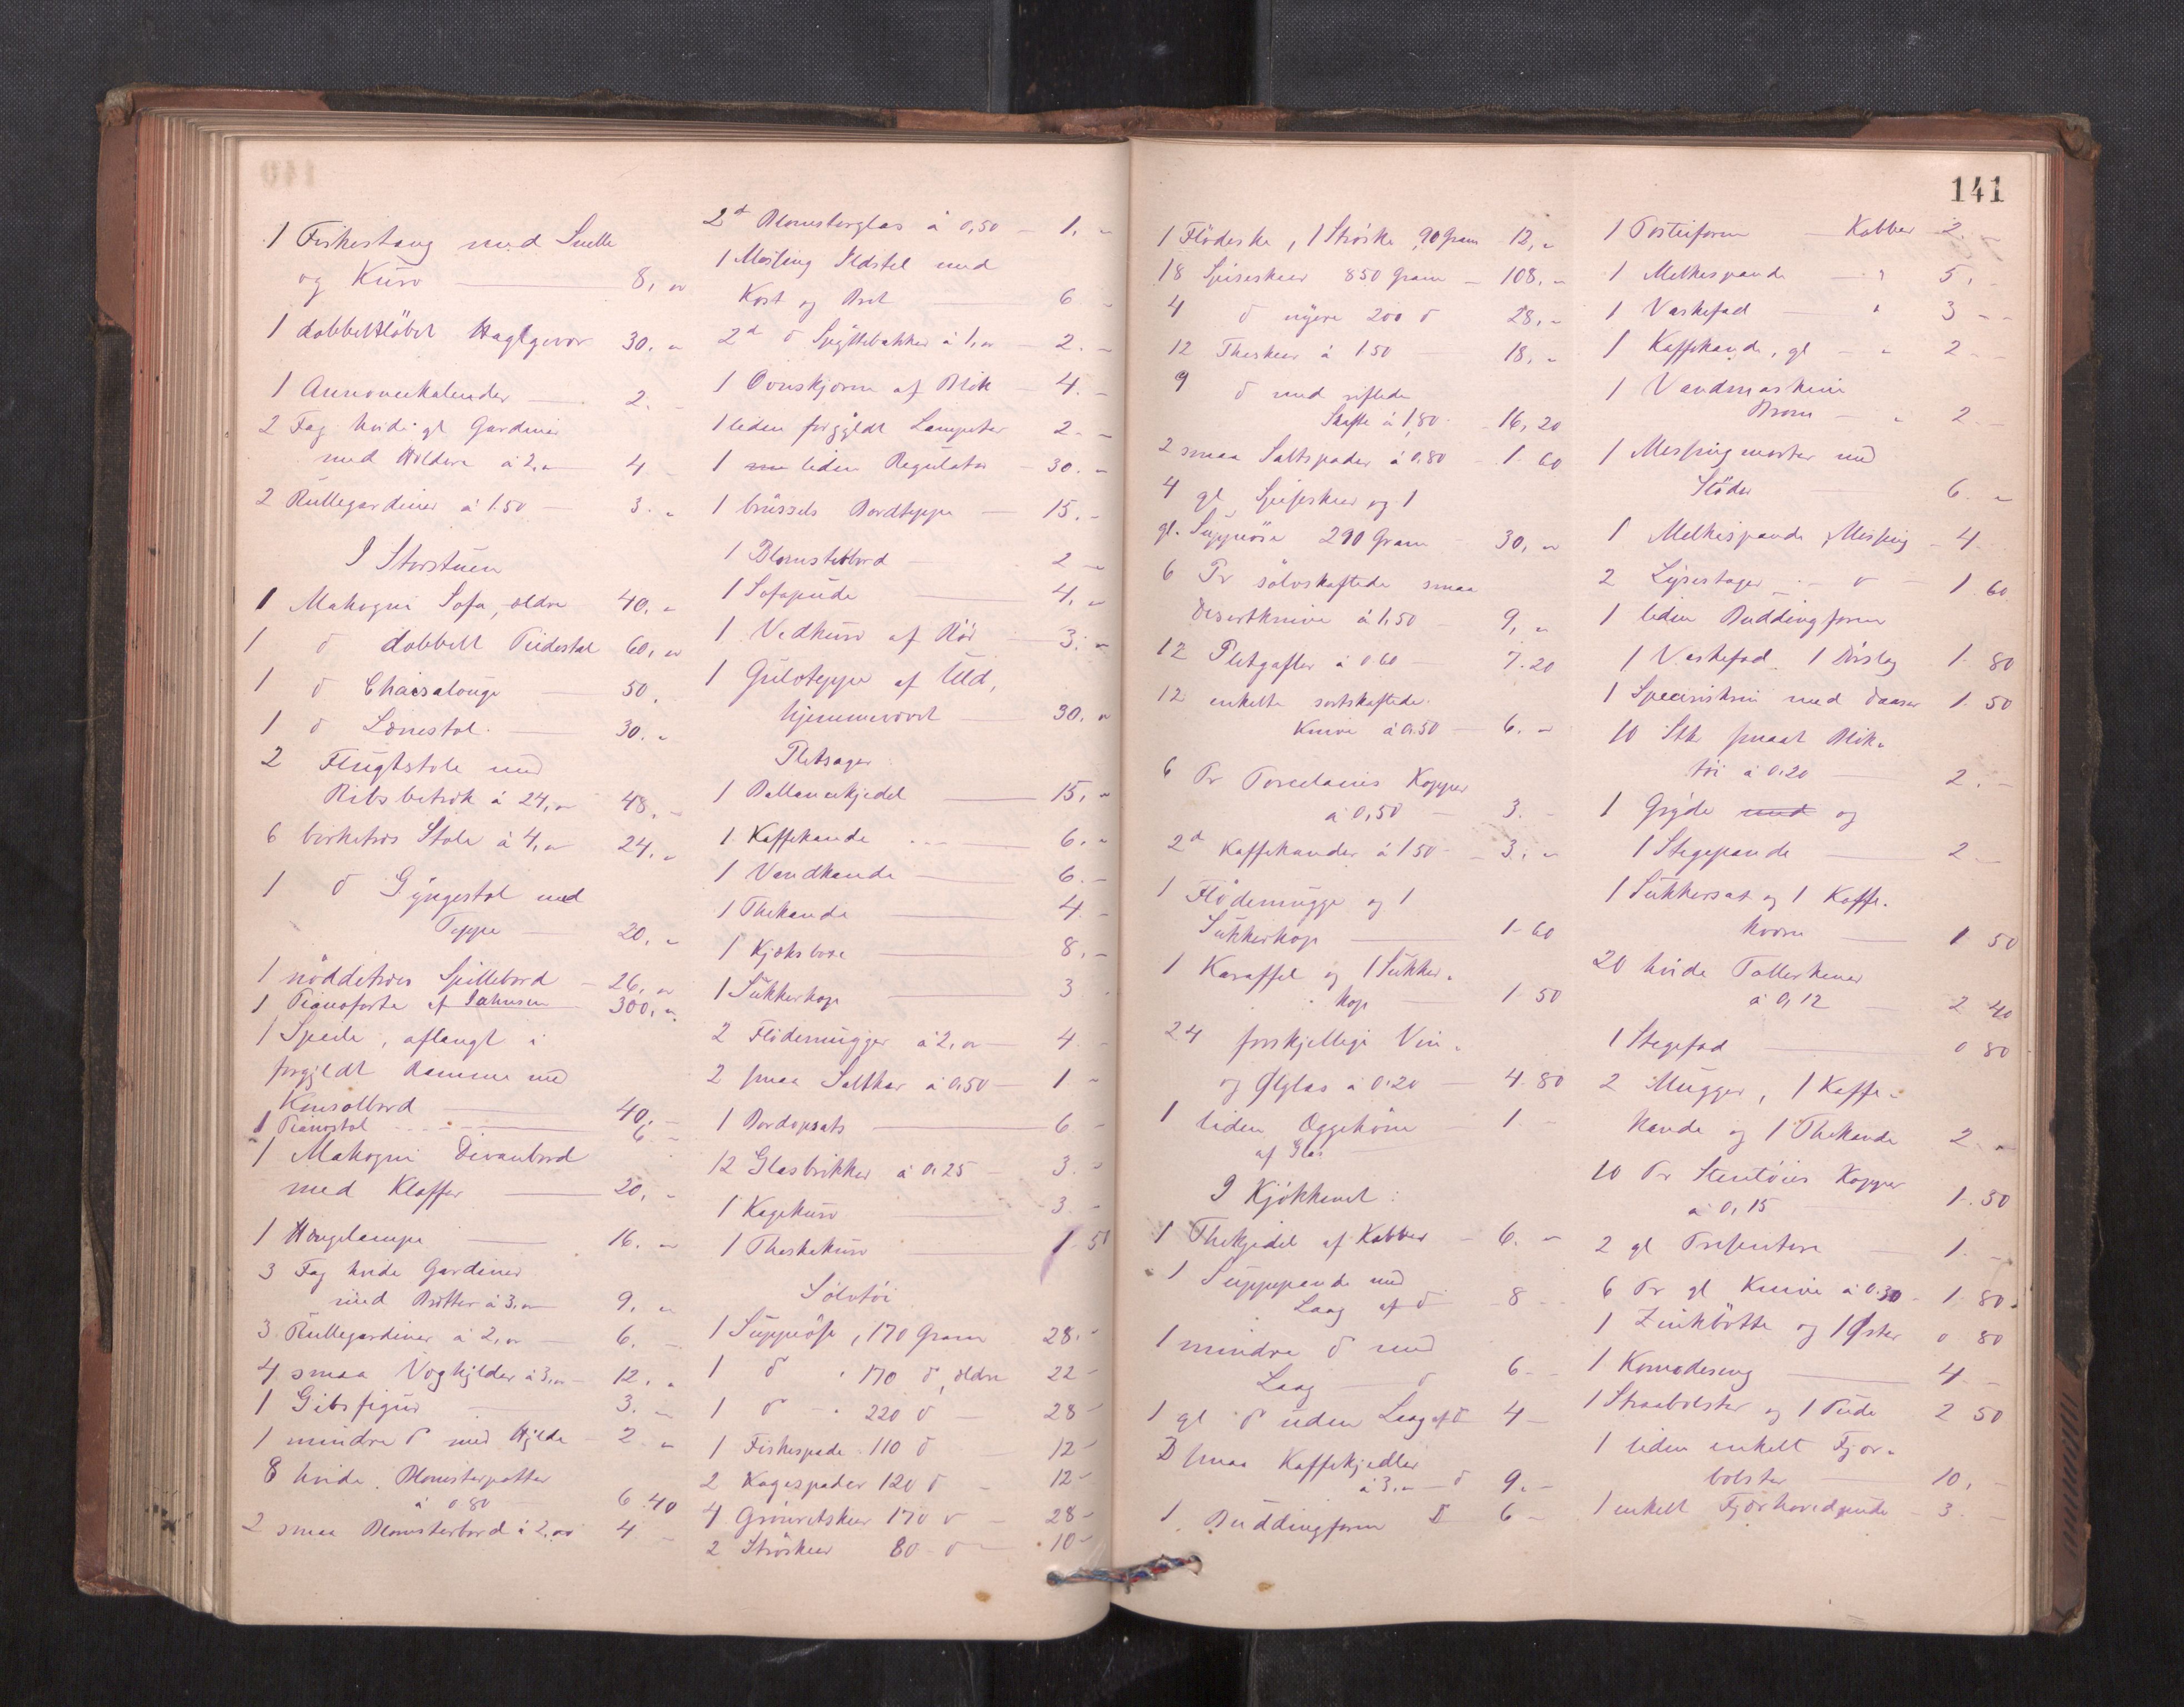 1 Fiskestang med Snelle
og Kurv 8, "
1 dobbeltløbet Haglgevær 30. "
1 Annoncekalender 2. "
2 Fag hvide gl Gardiner
med Holdere à 2, " 4 "
2 Rullegardiner à 1.50 3. "
I Storstuen
1 Mahogni Sofa, ældre 40. "
1 d dobbelt Pidestal 60, "
1 d Chaisalonge 50.
1 d Lænestol 30. "
2 Flugtstole med
Ribs betræk à 24, " 48. "
6 birketræs Stole à 4, " 24. "
1 d Gyngestol med
Teppe 20, "
1 nøddetræs Spillebord 26, "
1 Pianoforte af 300, "
1 Speile, aflangt i
forgyldt Ramme med
Konsolbord 40. "
1 Pianostol 6 "
1 Mahogni Divanbord
med Klaffer 20, "
1 Hængelampe 16. "
3 Fag hvide Gardiner
med Bretter à 3, " 9, "
3 Rullegardiner à 2, " 6. "
4 smaa Veghylder à 3, " 12. "
1 Gibsfigur 3. "
1 mindre d med Hylde 2. "
8 hvide Blomsterpotter
à 0.80 6.40
2 smaa Blomsterbord à 2, " 4 "
2d Blomsterglas à 0,50 1, "
1 Messing Ildstel med
Kost og Bret 6 "
2d d Spyttebakker à 1, " 2. "
1 Ovnskjærm af Blik 4. "
1 liden forgyldt Lampeter 2. "
1 liden Regulator 30. "
1 brüssels Bordteppe 15. "
1 Blomsterbord 2 "
1 Sofapude 4, "
1 Vedkurv af Rør 3. "
1 Gulvteppe af Uld,
hjemmevævet 30. "
Pletsager:
1 Ballancekjedel 15, "
1 Kaffekande 6. "
1 Vandkande 6. "
1 Thekande 4. "
1 Kjæksboxe 8. "
1 Sukkerkop 3
2 Flødemugger à 2, " 4 "
2 smaa Saltkar à 0.50 1 "
1 Bordopsats 6 "
12 Glasbrikker à 0.25 3. "
1 Kagekurv 3 "
1 Theskekurv 1.50
Sølvtøi
1 Suppeøse, 170 Gram 28. "
1 d " 170 d, ældre 22 "
1 d " 220 d 28 "
1 Fiskespade 110 d 12 "
2 Kagespader 120 d 12 "
4 Grønretskeer 170 d 28 "
2 Strøskeer 80 d 10 "
141
1 Flødeske, 1 Strøske, 90 Gram 12, "
18 Spiseskeer 850 Gram 108, "
4 d nyere 200 d 28, "
12 Theskeer à 1.50 18, "
9 d med riflede
Skafte à 1,80 16,20
2 smaa Saltspader à 0,80 1.60
4 gl Spiseskeer og 1
gl. Suppeøse 290 Gram 30, "
6 Pr sølvskaftede smaa
Desertknive à 1,50 9, "
12 Pletgafler à 0.60 7.20
12 enkelte sortskaftede
Knive à 0.50 6. "
6 Pr Porcelæins Kopper
à 0,50 3. "
2d Kaffekander à 1.50 3. "
1 Flødemugge og 1
Sukkerkop 1.60
1 Karaffel og 1 Sukker-
kop 1.50
24 forskjellige Vin-
og Ølglas à 0.20 4.80
1 liden Oggehøne 1. "
af Glas
I Kjøkkenet:
1 Thekjedel af Kobber 6. "
1 Suppepande med
Laag af d 8 "
1 mindre d med
Laag d 6 "
1 gl d uden Laag af d 4 "
3 smaa Kaffekjedler
à 3, " d 9. "
1 Buddingform d 6 "
1 Posteiform Kobber 2. "
1 Melkespande " 5, "
1 Vaskefad " 3 "
1 Kaffekande, gl " 2 "
1 Vandmaskine
" 2 "
1 Messingmorter med
Støder 6. "
1 Melkespande, Messing 4 "
2 Lysestager d 1.60
1 liden Buddingform
1 Vaskefad 1 Dørslag 1.80
1 Speciriskrin med Daaser 1.50
10 Stk smaat Blik-
tøi à 0.20 2. "
1 Gryde med og
1 Stegepande 2 "
1 Sukkersax og 1 Kaffe-
kvern 1.50
20 hvide Tallerkener
à 0,12 2.40
1 Stegefad 0.80
2 Mugger, 1 Kaffe-
kande og 1 Thekande 2. "
10 Pr Stentøies Kopper
à 0,15 1.50
2 gl Presentere 1. "
6 Pr gl Knive à 0.30 1.80
1 Zinkbøtte og 1 Øster 0.80
1 Komodeseng 4 "
1 Straabolster og 1 Pude 2.50
1 liden enkelt Fjær-
bolster 10, "
1 enkelt Fjærhovedpude 3. "